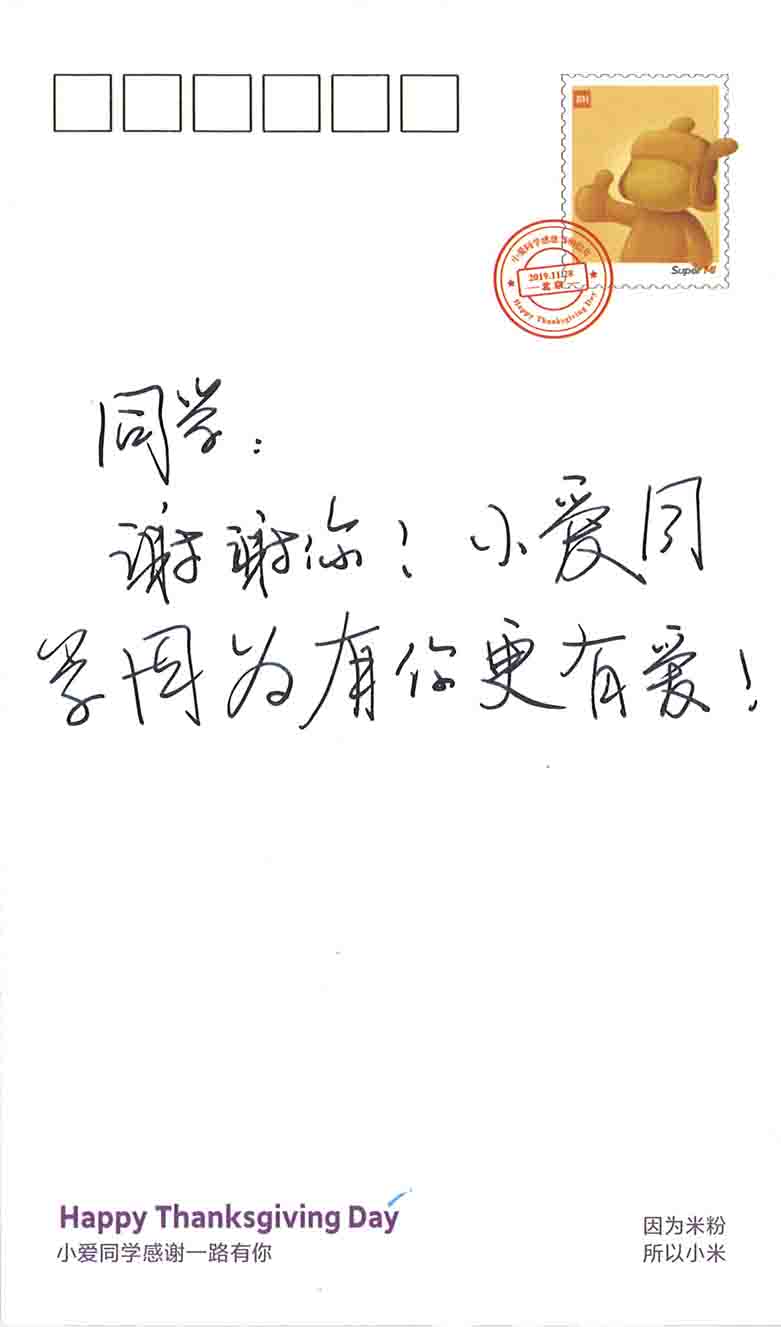 MI
Super MI
小爱同学感恩
2019.11.28
北京
Happy Thanksgiving Day
同学：
谢谢你！小爱同
学因为有你更有爱！
Happy Thanksgiving Day
小爱同学感谢一路有你
因为米粉
所以小米